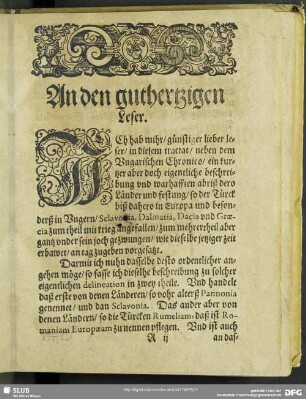 An den guthertzigen
Leser.
ICh hab nuhr/ günstiger lieber le-
ser/ in diesem tractat/ neben dem
Vngarischen Chronico/ ein kur-
tzer aber doch eigentliche beschrei-
bung vnd warhafften abriß der o
Länder vnd festung/ so der Türck
biß dahero in Europa vnd beson-
derß in Vngern/ Sclavonia, Dalmatia, Dacia vnd Græ-
cia zum theil mit krieg angefallen/ zum mehrertheil aber
gantz vnder sein joch gezwungen/ wie dieselbe jetziger zeit
erbawet/ an tag zugeben vorgesatz.
Darmit ich nuhn dasselbe desto ordentlicher an-
gehen möge/ so fasse ich dieselbe beschreibung zu solcher
eigentlichen delineation in zwey theile. Vnd handele
daß erste von denen Länderen/ so vohr alterß Pannonia
genennet/ vnd dan Sclavonia. Das ander aber von
denen Ländern/ so die Türcken Rumeliam, daß ist Ro-
maniam Europæam zu nennen pflegen. Vnd ist auch
A ij an das-
SLUB
Wir führen Wissen.